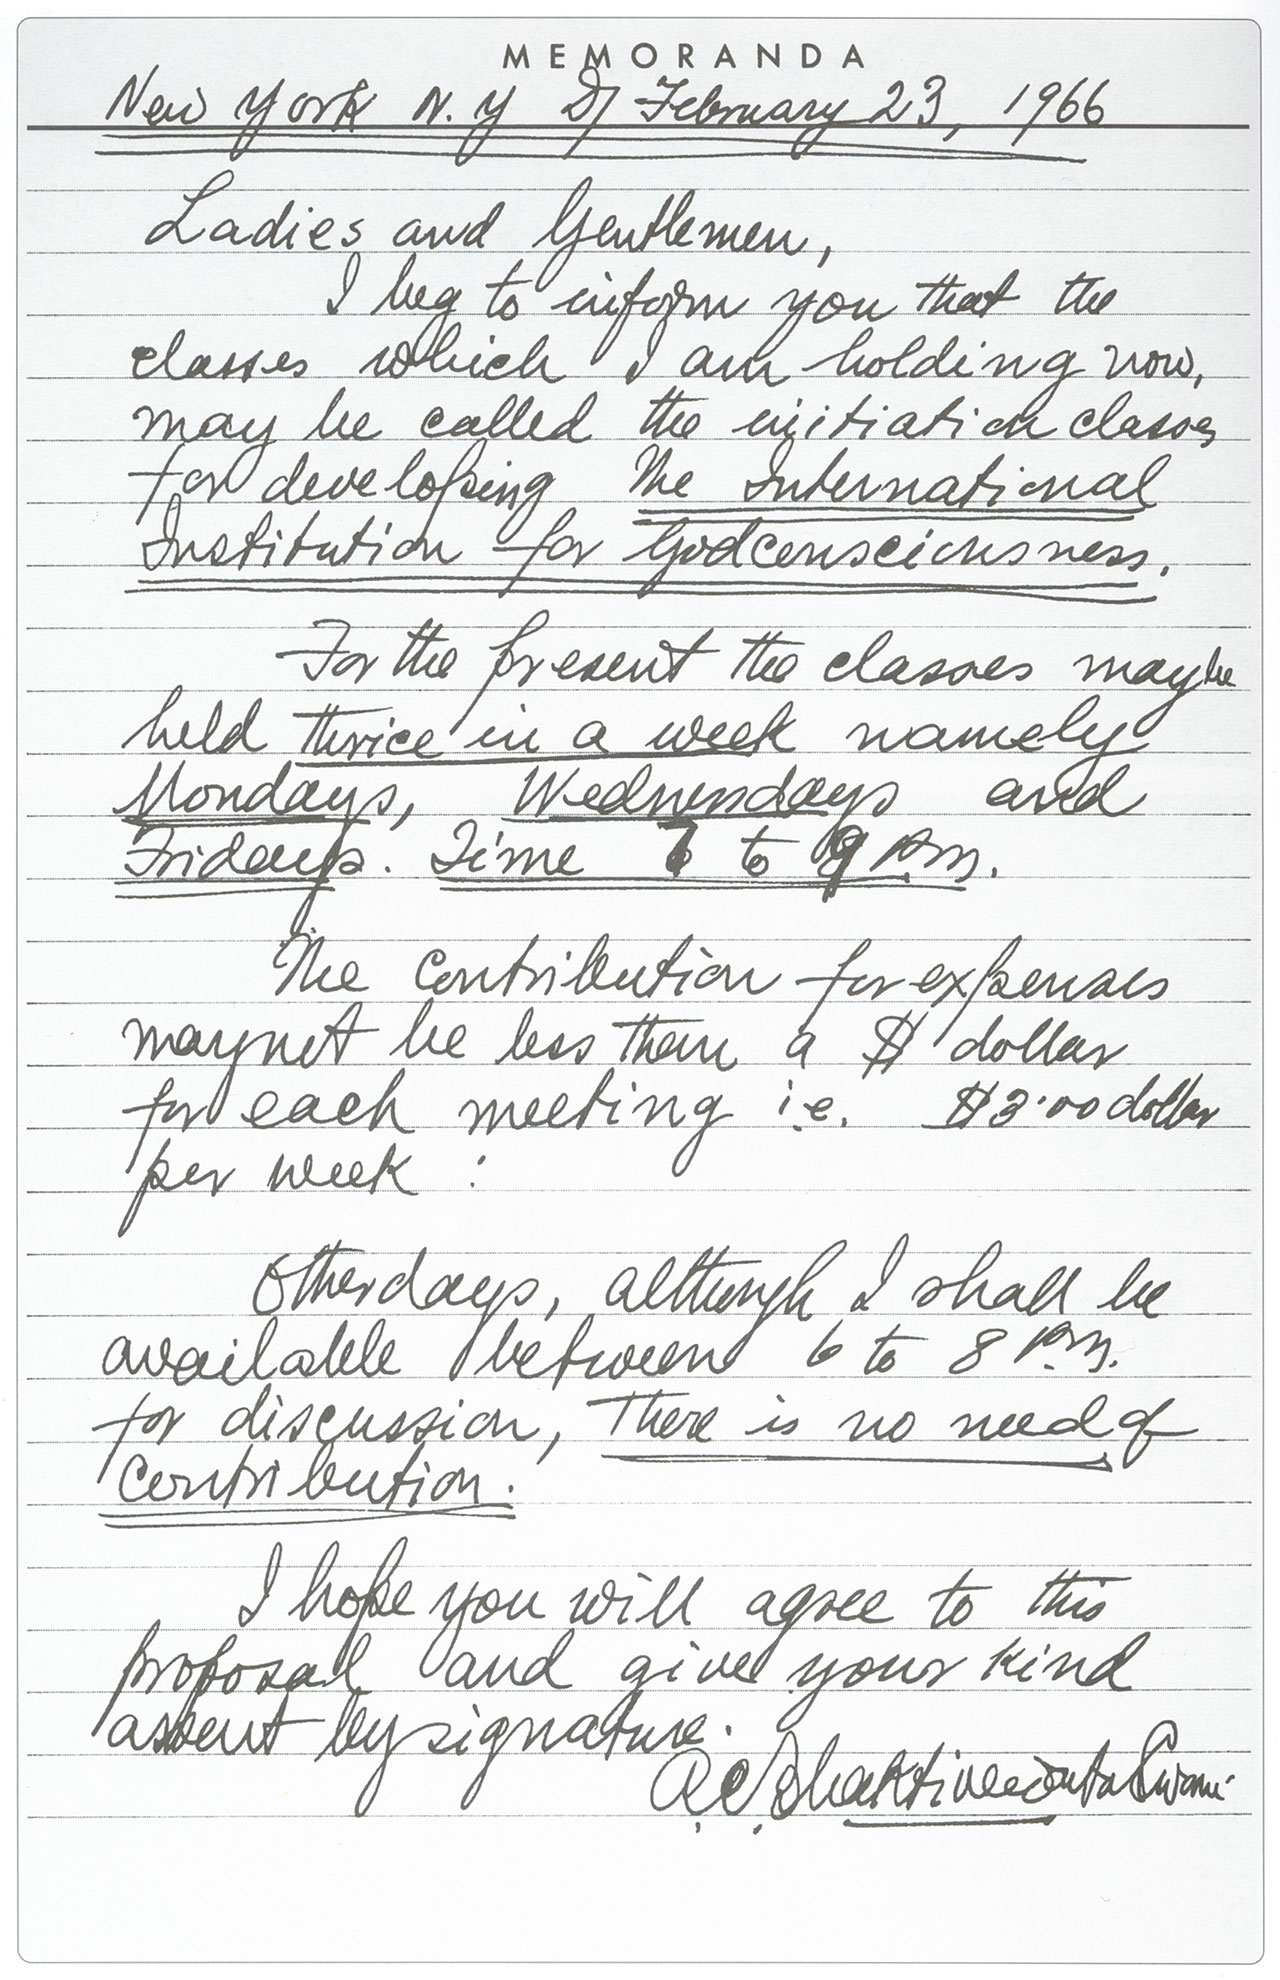 MEMORANDA
New York N.Y D/ February 23, 1966
Ladies and Gentlemen,
I beg to inform you that the
classes which I am holding now,
may be called the initiation classes
for developing the International
Institution for Godconsciousness.
For the present the classes may be
held thrice in a week namely
Mondays, Wednesdays and
Fridays. Time to 9 P.m.
The contribution for expenses
may not be less than a $ dollar
for each meeting i.e. $3.00 dollar
per week :
Otherdays, although I shall be
available between 6 to 8 P.m.
for discussion, There is no need of
Contribution.
I hope you will agree to this
proposal and give your kind
assent by signature.
A.C. Bhaktivedanta Swami